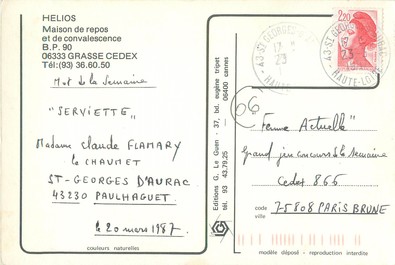 HELIOS
Maison de repos
et de convalescence
B.P. 90
06333 GRASSE CEDEX
Tél:(93) 36.60.50
Mot de la Semaine
"SERVIETTE"
Madame Claude FLAMARY
le CHAUMET
ST-GEORGES D'AURAC
43230 PAULHAGUET
le 20 mars 1987.
couleurs naturelles
Editions G. Le Guen - 37, bd. eugène tripet
06400 cannes
tél. 93 43.79.25
2,20
43-ST GEORGES
17
23
HAUTE-LOIRE
66
"Femme Actuelle"
Grand jeu concours de la semaine
Cedex 866
code
ville
75808 PARIS BRUNE
modèle déposé - reproduction interdite